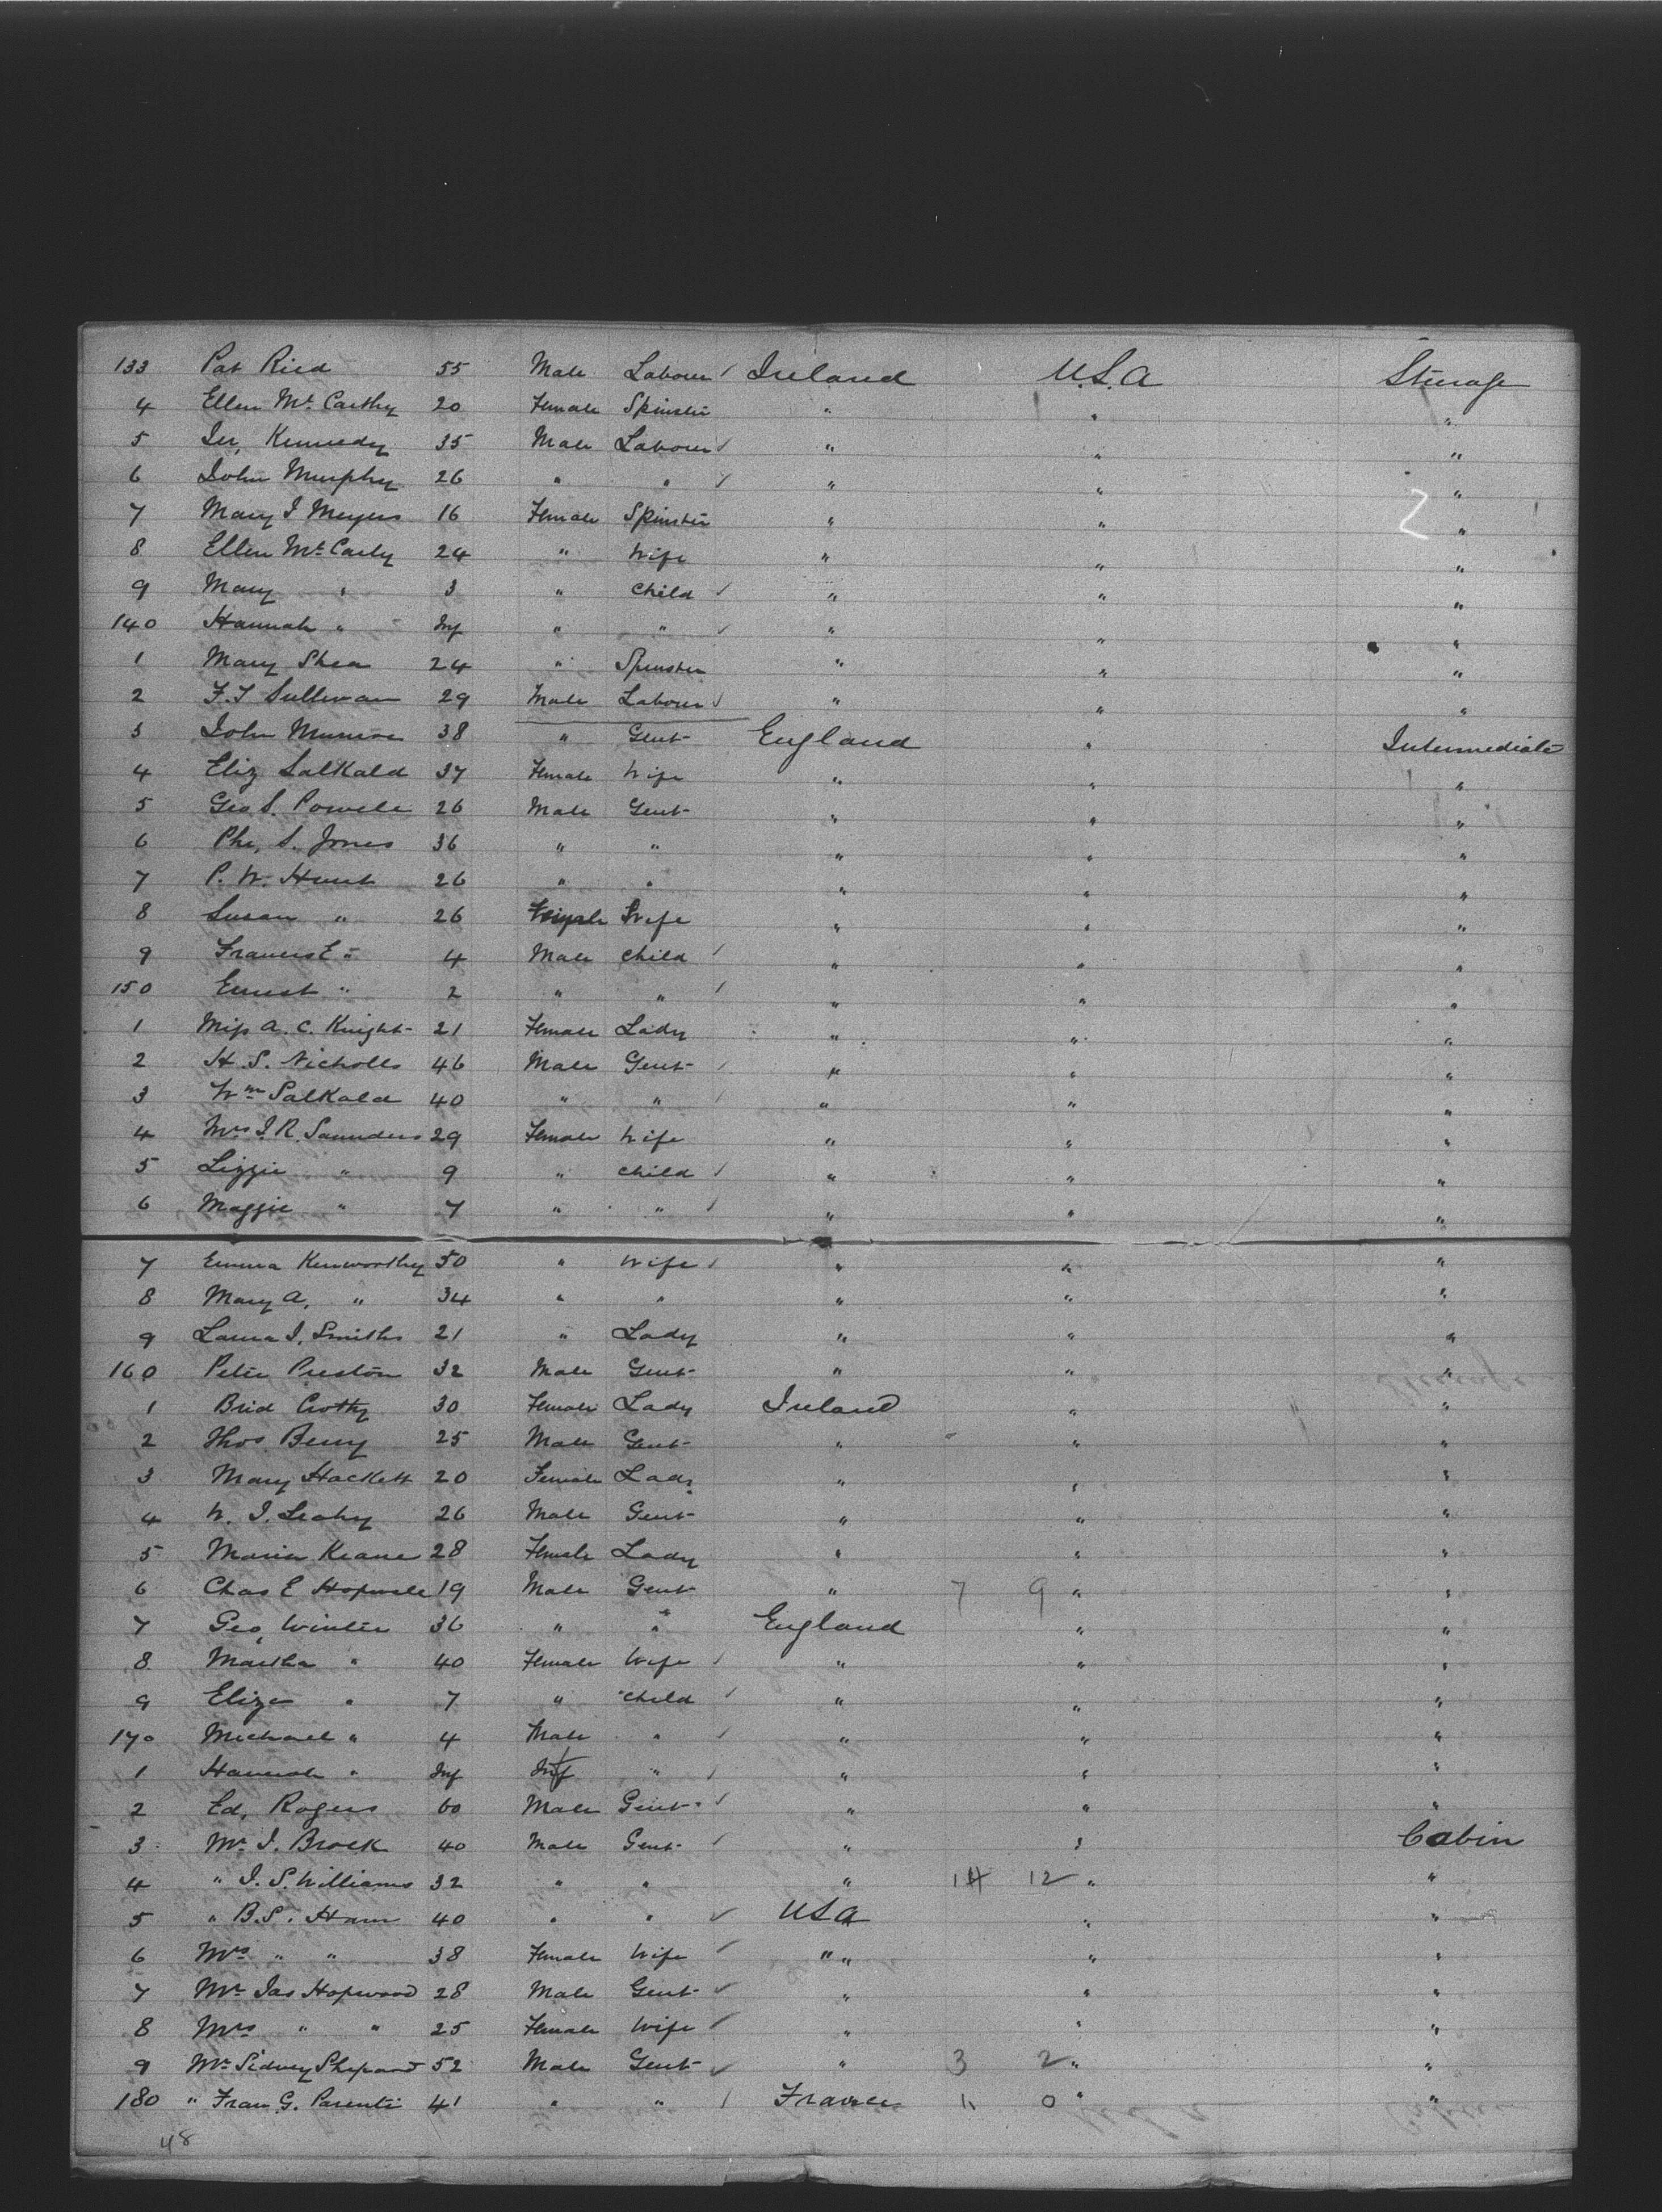 133 Pat Ried 55 Male Labour ✓ Ireland U.S.A Sturage
4 Ellen Mc. Carthy 20 Female Spinster " " "
5 Jer, Kennedy 35 Male Labour ✓ " " "
6 John Murphy 26 " " ✓ " " "
7 Mary J Meyers 16 Female Spinster " " "
8 Ellen Mc Carty 24 " Wife " " "
9 Mary " 3 " Child ✓ " " "
140 Hannah " Inf " " ✓ " " "
1 Mary Shea 24 " Spinster " " "
2 F. J Sullivan 29 Male Labour ✓ " " "
3 John Munroe 38 " Gent England " Intermediate
4 Eliz Salkald 37 Female Wife " " "
5 Geo S. Powell 26 Male Gent " " "
6 Phe, S. Jones 36 " " " " "
7 P. W. Hunt 26 " " " " "
8 Susan " 26 Female Wife " " "
9 Francis E " 4 Male Child ✓ " " "
150 Ernest " 2 " " ✓ " " "
1 Miss A. C. Knight 21 Female Lady " " "
2 H. S. Nicholls 46 Male Gent ✓ " " "
3 Wm Salkald 40 " " ✓ " " "
4 Mrs J. R. Saunders 29 Female Wife " " "
5 Lizzie " 9 " Child ✓ " " "
6 Maggie " 7 " " ✓ " " "
7 Emma Kenworthy 50 " Wife ✓ " " "
8 Mary A, " 34 " " " " "
9 Laura J. Smiths 21 " Lady " " "
160 Peter Preston 32 Male Gent " " "
1 Brid Crotty 30 Female Lady Ireland " "
2 Thos Berry 25 Male Gent " " "
3 Mary Hackett 20 Female Lady " " "
4 W. J. Leahy 26 Male Gent " " "
5 Maria Keane 28 Female Lady " " "
6 Chas E Hopwell 19 Male Gent " 7 9 " "
7 Geo, Winter 36 " " England " "
8 Martha " 40 Female Wife ✓ " " "
9 Eliza " 7 " Child ✓ " " "
170 Michael " 4 Male " ✓ " " "
1 Hannah " Inf Inf " ✓ " " "
2 Ed, Rogers 60 Male Gent ✓ " " "
3 Mr J. Brock 40 Male Gent ✓ " " Cabin
4 " J. S. Williams 32 " " " 12 " "
5 " B. S. Ham 40 " " ✓ USA " "
6 Mrs " " 38 Female Wife ✓ " " " "
7 Mr Jas Hopwood 28 Male Gent ✓ " " "
8 Mrs " " 25 Female Wife ✓ " " "
9 Mr Sidney Shepard 52 Male Gent ✓ " 3 2 " "
180 " Fran G. Parenti 41 " " ✓ France 11 0 " "
48